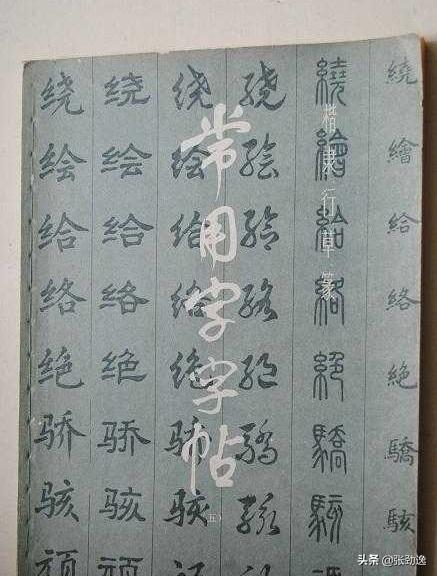 常用字字帖
（五）
楷隶行草篆
绕绘给络绝骄骇顽
绕绘给络绝骄骇顽
绕绘给络绝骄骇
绕绘给络绝骄骇
繞繪給絡絕驕駭
繞繪給絡絶驕駭
头条 @张劲逸